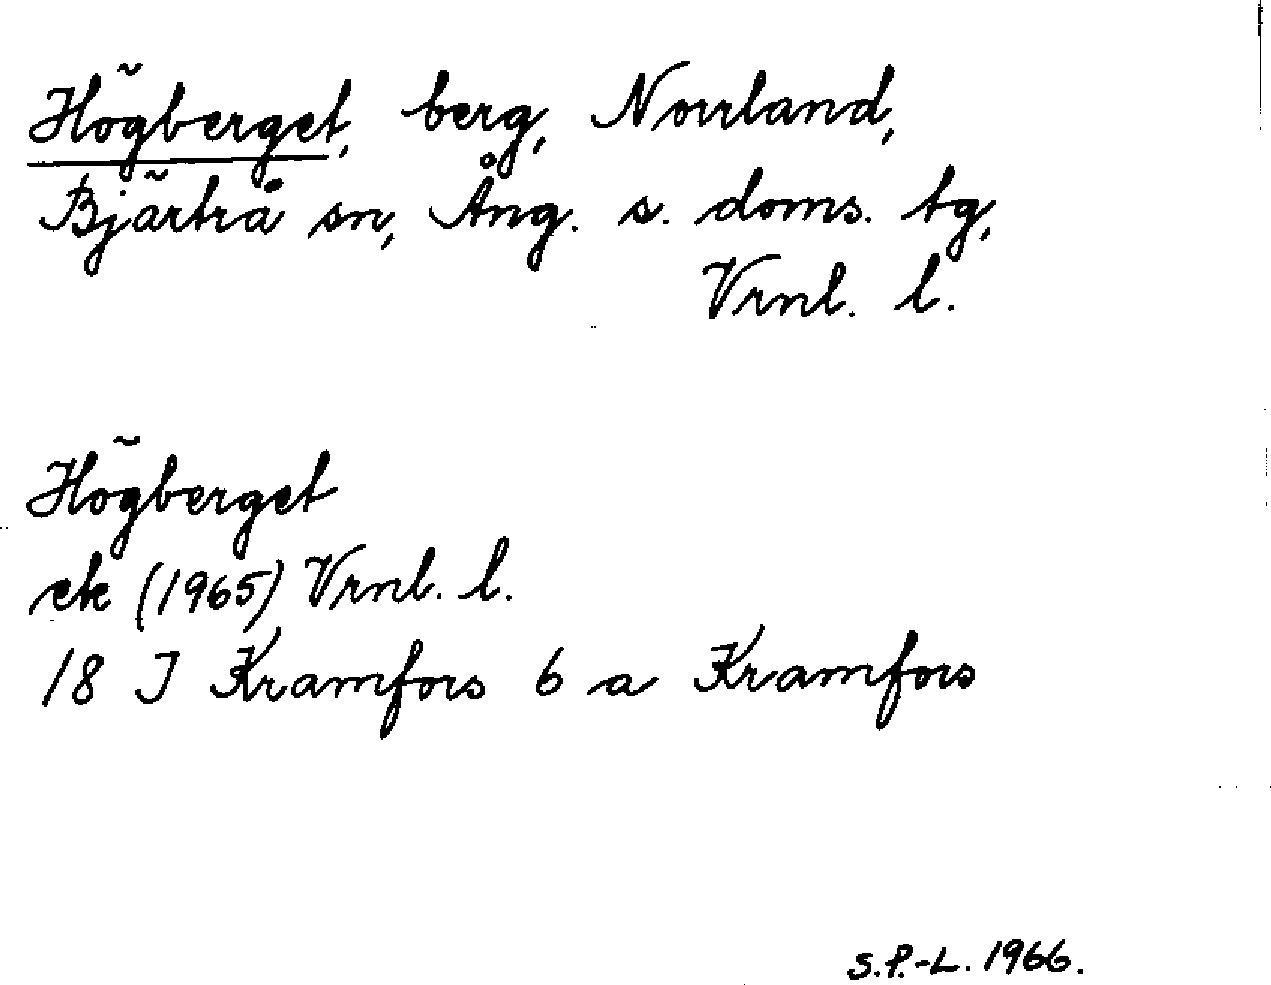 Högberget, berg, Norrland,
Bjärtrå sn, Ång. s. doms. tg,
Vrnl. l.
Högberget
ek (1965) Vrnl. l.
18 J Kramfors 6 a Kramfors
S.P.-L. 1966.